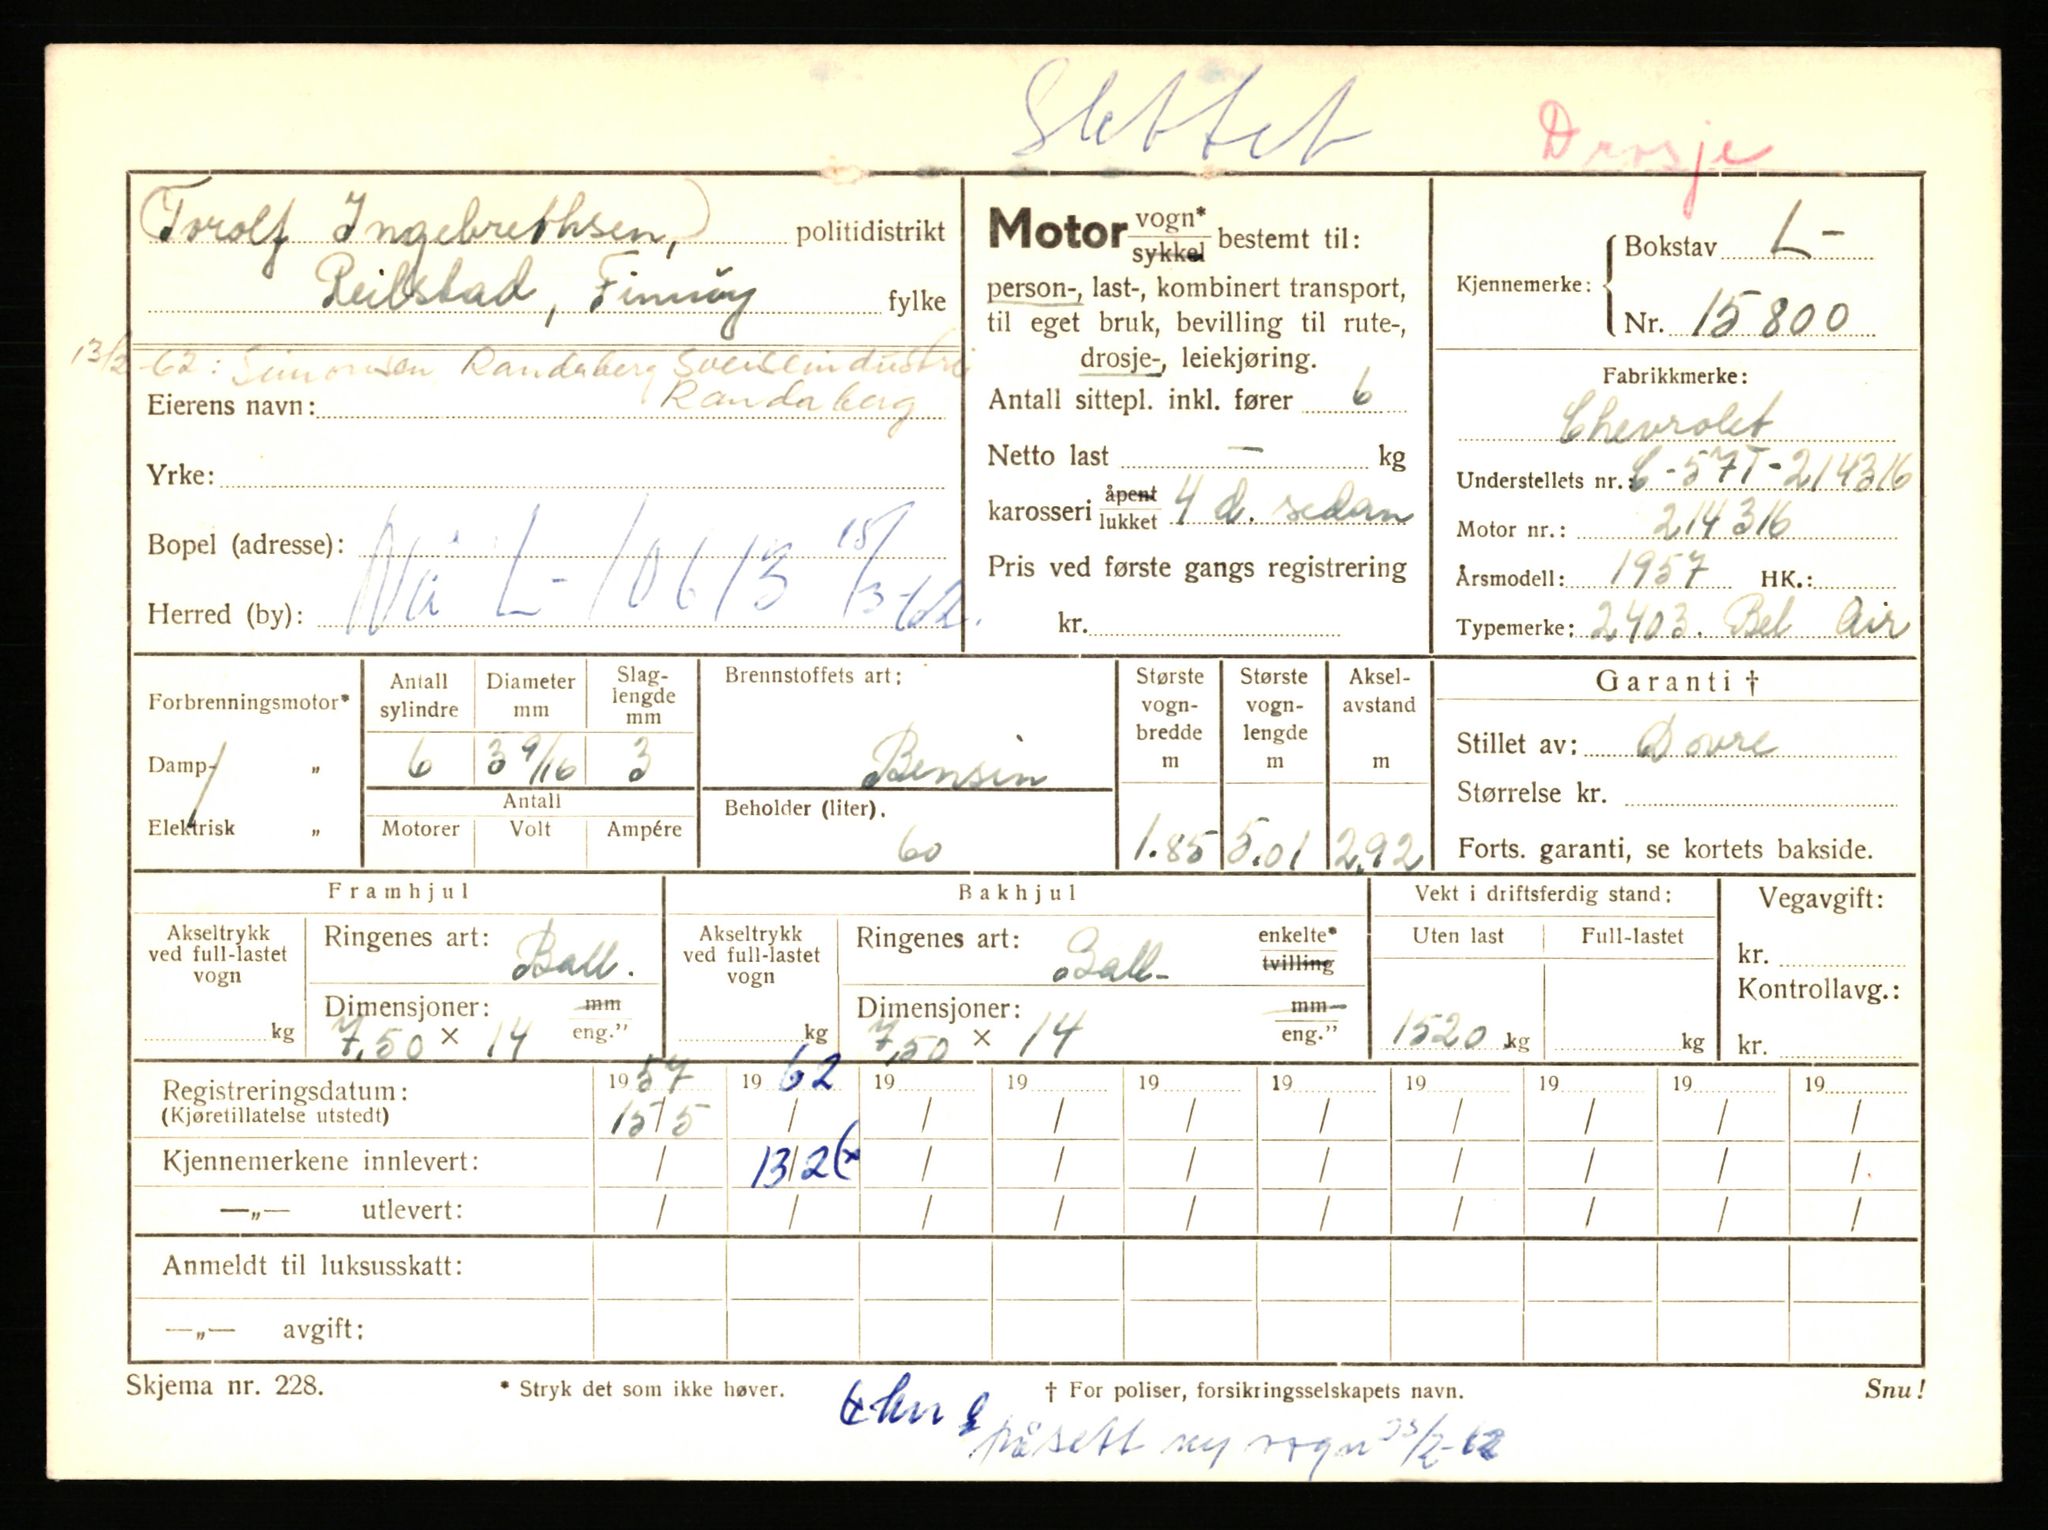 Slettet
Drosje
(Torolf Ingebrethsen,) politidistrikt
Reilstad, Finnöy fylke
13/2-62: Simonsen Randaberg Sveiseindustri
Randaberg
Eierens navn:
Yrke:
Bopel (adresse):
Herred (by):
Nå L-10613 15/3-62.
Motor vogn* / sykkel bestemt til:
person-, last-, kombinert transport,
til eget bruk, bevilling til rute-,
drosje-, leiekjøring.
Antall sittepl. inkl. fører 6
Netto last — kg
karosseri åpent / lukket 4 d. sedan
Pris ved første gangs registrering
kr.
Kjennemerke: Bokstav L-
Nr. 15800
Fabrikkmerke:
Chevrolet
Understellets nr.: C-57T-214316
Motor nr.: 214316
Årsmodell: 1957 HK.:
Typemerke: 2403. Bel Air
Forbrenningsmotor*
Damp- „
Elektrisk „
Antall sylindre
6
Diameter mm
3 9/16
Slag-lengde mm
3
Antall
Motorer Volt Ampére
Brennstoffets art:
Bensin
Beholder (liter).
60
Største vogn-bredde m
1.85
Største vogn-lengde m
5.01
Aksel-avstand m
2.92
Garanti †
Stillet av: Dovre
Størrelse kr.
Forts. garanti, se kortets bakside.
Framhjul
Akseltrykk ved full-lastet vogn
kg
Ringenes art: Ball.
Dimensjoner: mm / eng."
7,50 × 14
Bakhjul
Akseltrykk ved full-lastet vogn
kg
Ringenes art: Ball- enkelte* / tvilling
Dimensjoner: mm / eng."
7,50 × 14
Vekt i driftsferdig stand:
Uten last Full-lastet
1520 kg kg
Vegavgift:
kr.
Kontrollavg.:
kr.
Registreringsdatum: 1957 1962 19 19 19 19 19 19 19 19
(Kjøretillatelse utstedt) 15/5 / / / / / / / / /
Kjennemerkene innlevert: / 13/2 (x / / / / / / / /
—„— utlevert: / / / / / / / / / /
Anmeldt til luksusskatt:
—„— avgift:
Skjema nr. 228.
* Stryk det som ikke høver.
† For poliser, forsikringsselskapets navn.
Snu!
påsett ny vogn 23/2-62